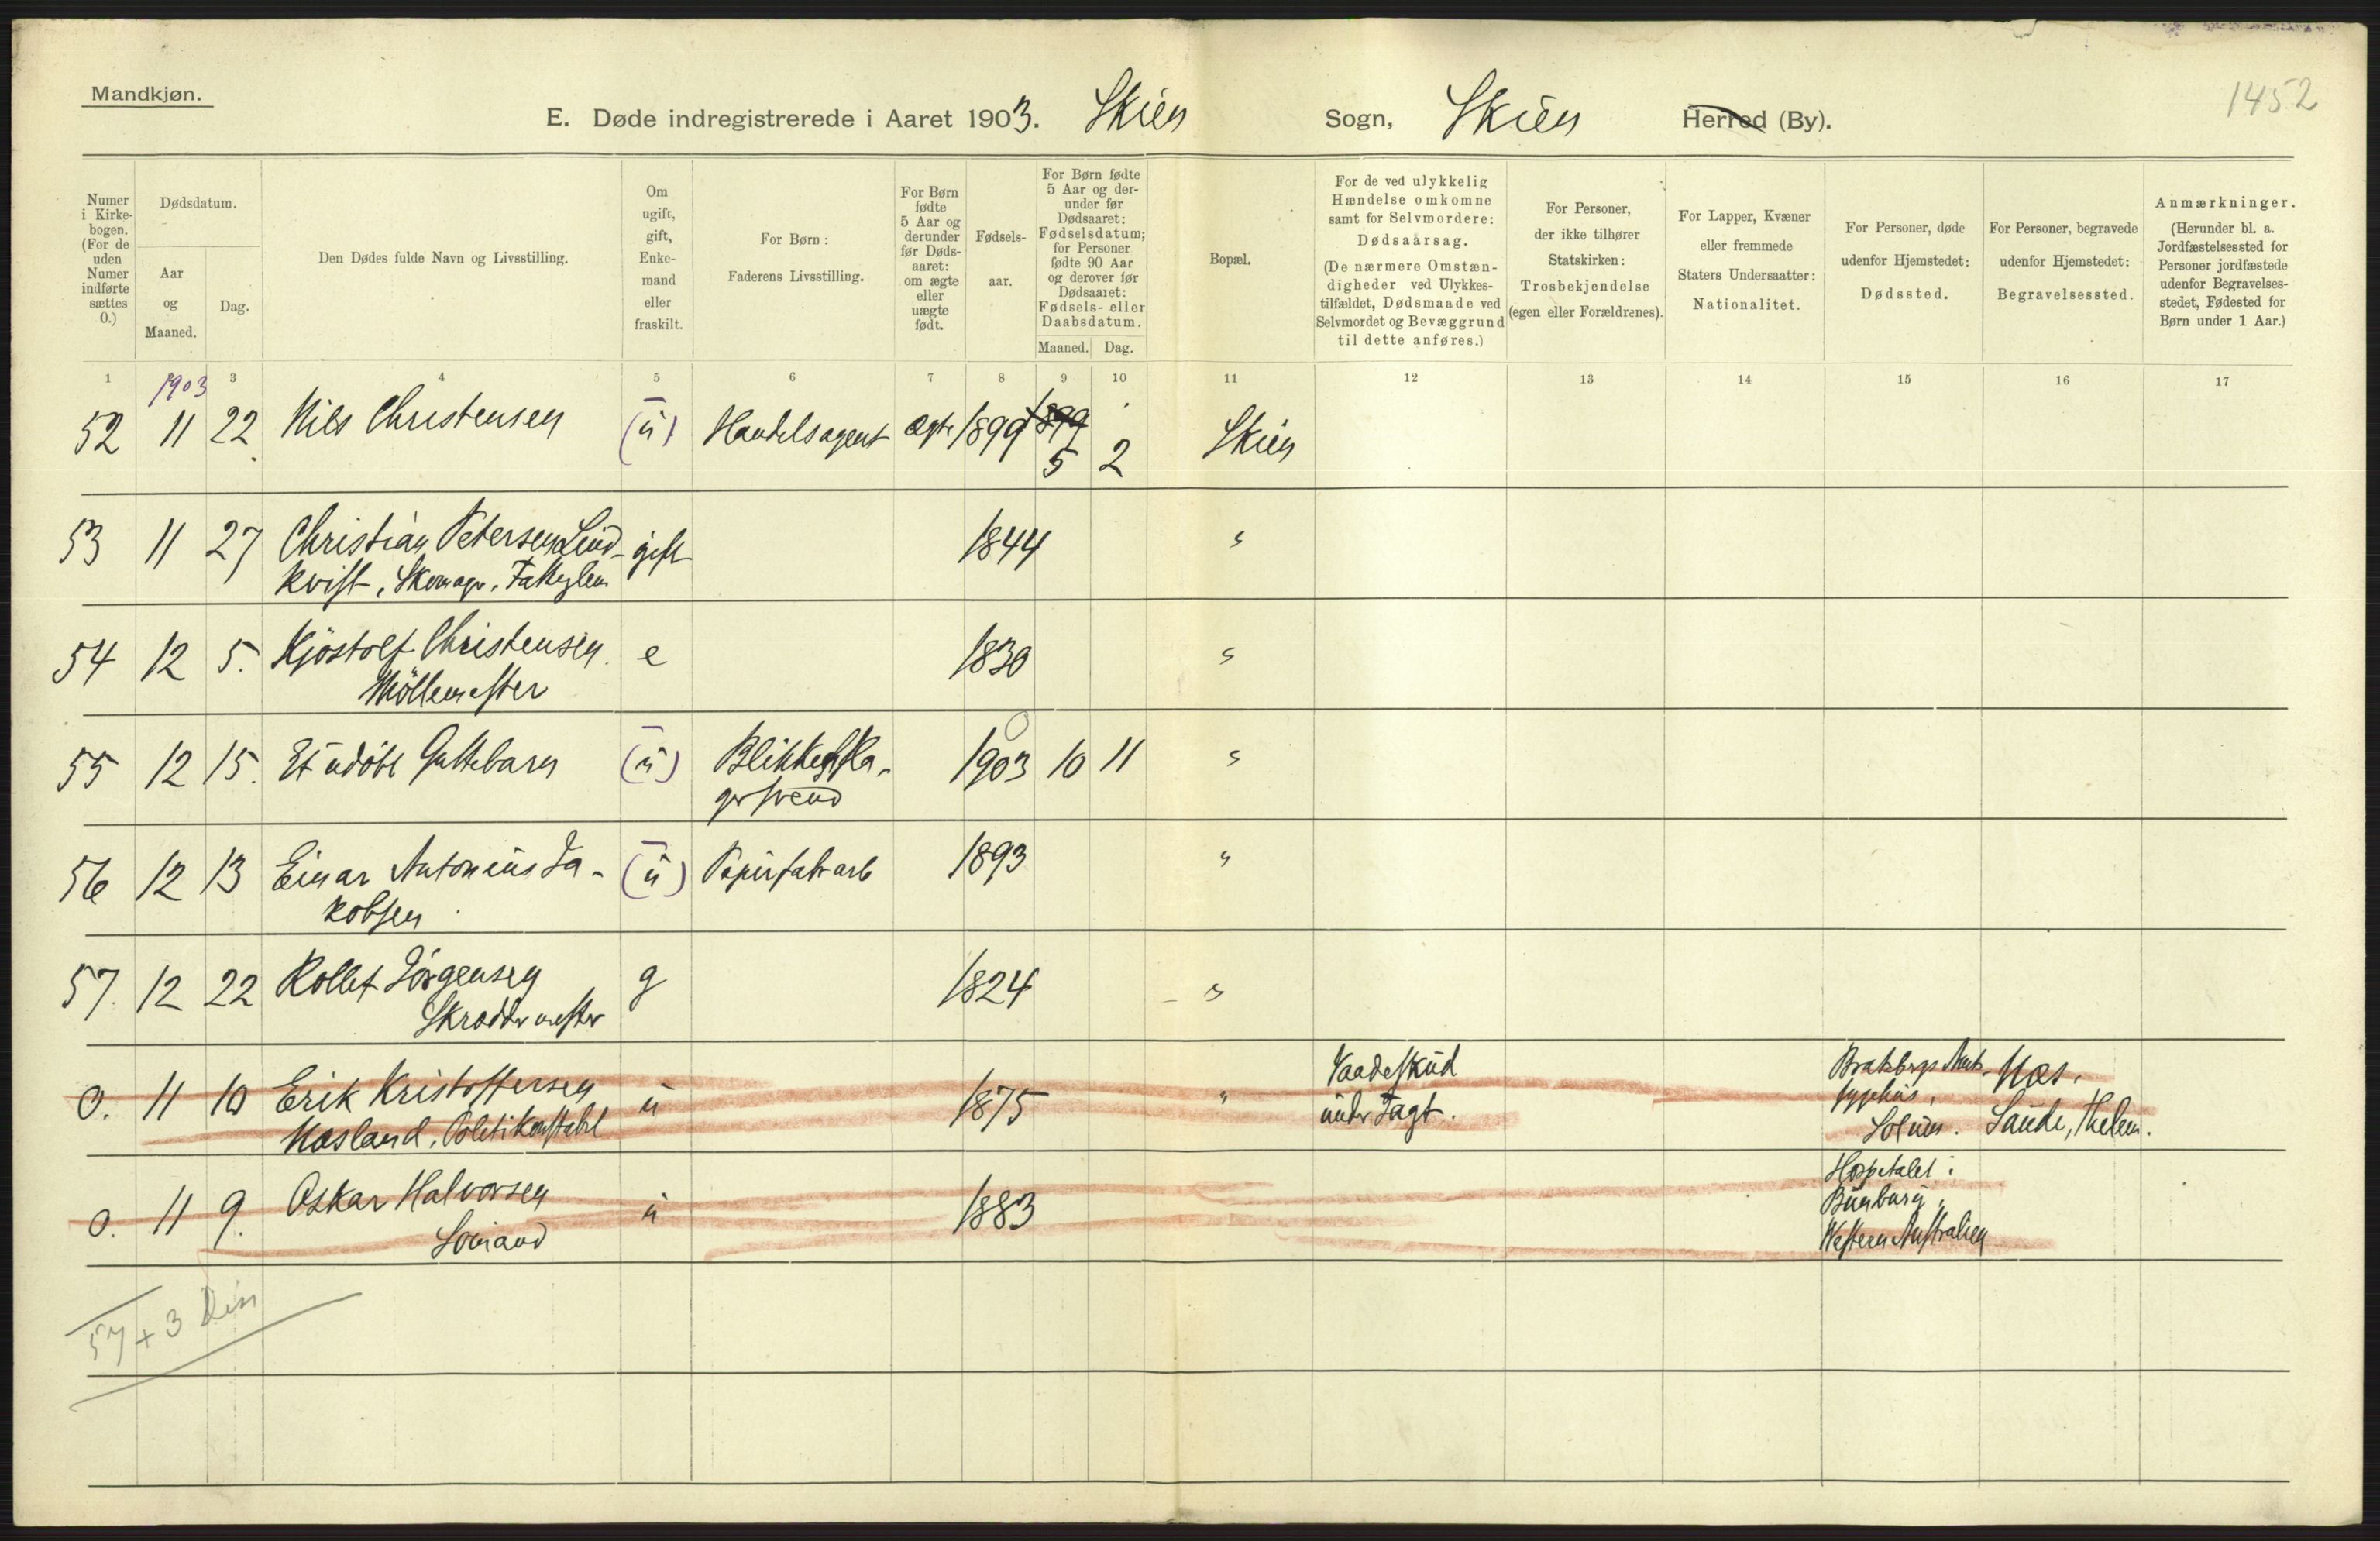 Mandkjøn.
1452
E. Døde indregistrerede i Aaret 1903. Skien Sogn, Skien Herred (By).
Numer i Kirkebogen. (For de uden Numer indførte sættes 0.)
Dødsdatum.
Aar og Maaned.
Dag.
Den Dødes fulde Navn og Livsstilling.
Om ugift, gift, Enkemand eller fraskilt.
For Børn: Faderens Livsstilling.
For Børn fødte 5 Aar og derunder før Dødsaaret: om ægte eller uægte født.
Fødselsaar.
For Børn fødte 5 Aar og derunder før Dødsaaret: Fødselsdatum; for Personer fødte 90 Aar og derover før Dødsaaret: Fødsels- eller Daabsdatum.
Maaned. Dag.
Bopæl.
For de ved ulykkelig Hændelse omkomne samt for Selvmordere: Dødsaarsag. (De nærmere Omstændigheder ved Ulykkestilfældet, Dødsmaade ved Selvmordet og Bevæggrund til dette anføres.)
For Personer, der ikke tilhører Statskirken: Trosbekjendelse (egen eller Forældrenes).
For Lapper, Kvæner eller fremmede Staters Undersaatter: Nationalitet.
For Personer, døde udenfor Hjemstedet: Dødssted.
For Personer, begravede udenfor Hjemstedet: Begravelsessted.
Anmærkninger. (Herunder bl. a. Jordfæstelsessted for Personer jordfæstede udenfor Begravelsesstedet, Fødested for Børn under 1 Aar.)
1 3 4 5 6 7 8 9 10 11 12 13 14 15 16 17
1903
52 11 22. Nils Christensen (u) Handelsagent ægte 1899 1899 5 2 Skien
53 11 27 Christian Petersen Lind- gift 1844 "
kvist, Skomager,
54 12 5. Kjøstolf Christensen. e 1830 "
Möllemester
55 12 15. Et udöbt Guttebarn (u) 1903 10 11 "
56 12 13 Einar Antonius Ja- (u) Papirfabrarb 1893 "
kobsen
57. 12 22 Rollef Jörgensen g 1824 "
Skræddermester
0. 11 10 Erik Kristoffersen u 1875 " Vaadeskud Bratsbergs Amts- Næs,
Næsland, Politikonstabel under Jagt. sygehus, Solum. Saude, Thelem.
0. 11 9. Oskar Halvorsen u 1883 Hospitalet i
Sömand Bunbury,
Western Australien
57 + 3